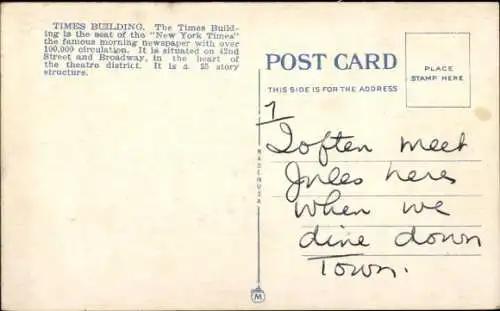 TIMES BUILDING. The Times Build-
ing is the seat of the "New York Times"
the famous morning newspaper with over
100,000 circulation. It is situated on 42nd
Street and Broadway, in the heart of
the theatre district. It is a 25 story
structure.
POST CARD
THIS SIDE IS FOR THE ADDRESS
PLACE
STAMP HERE
MADE IN USA
7
I often meet
Jules here
when we
dine down
Town.
M